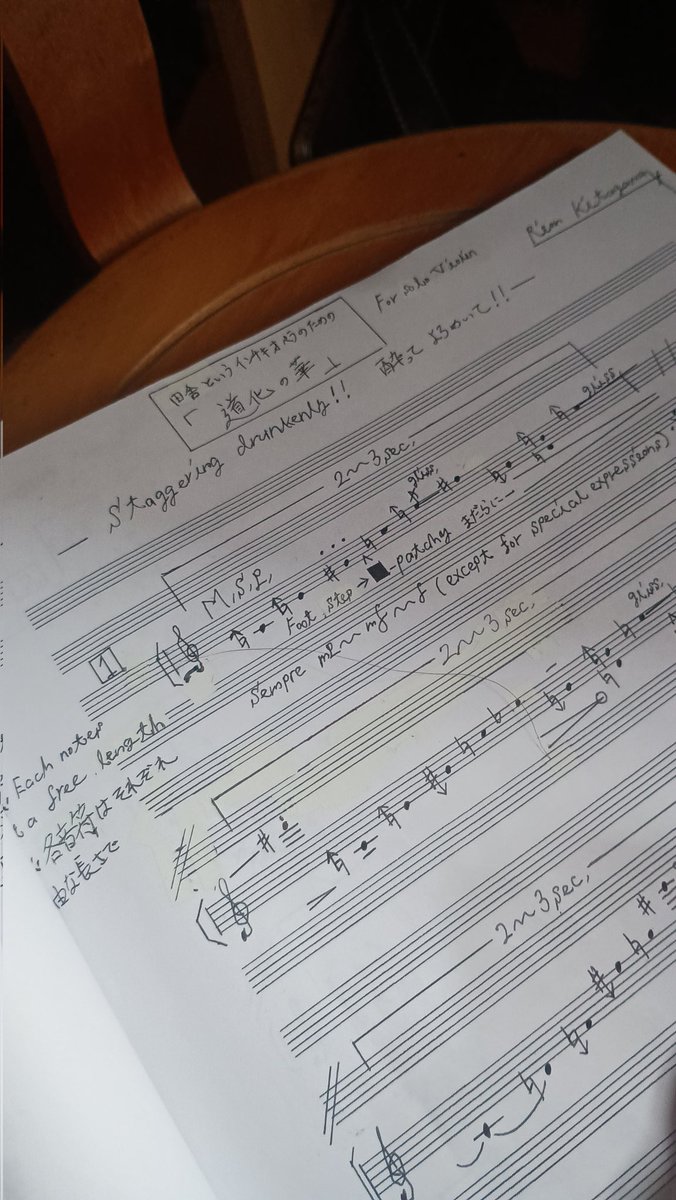 For solo Violin
田舎というインチキオペラのための
「道化の華」
— Staggering drunkenly!! 酔ってよろめいて!! —
2〜3sec.
gliss.
gliss.
M.S.P.
Foot step → ■ -patchy まだらに-
1
Sempre mp〜mf〜f (except for special expressions)
Each notes
a free length
各音符はそれぞれ
由な長さで
2〜3sec.
gliss.
2〜3sec.